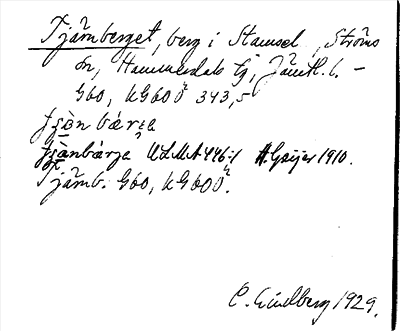 Tjärnberget, berg i Stamsel, Ströms
sn, Hammerdals tg, Jämtl. l. –
G60, KG600² 343,5
tjän bárja
tjänbárja ULMA 446:1 H. Geijer 1910.
Tjärnb. G60, KG600².
C. Lindberg 1929.